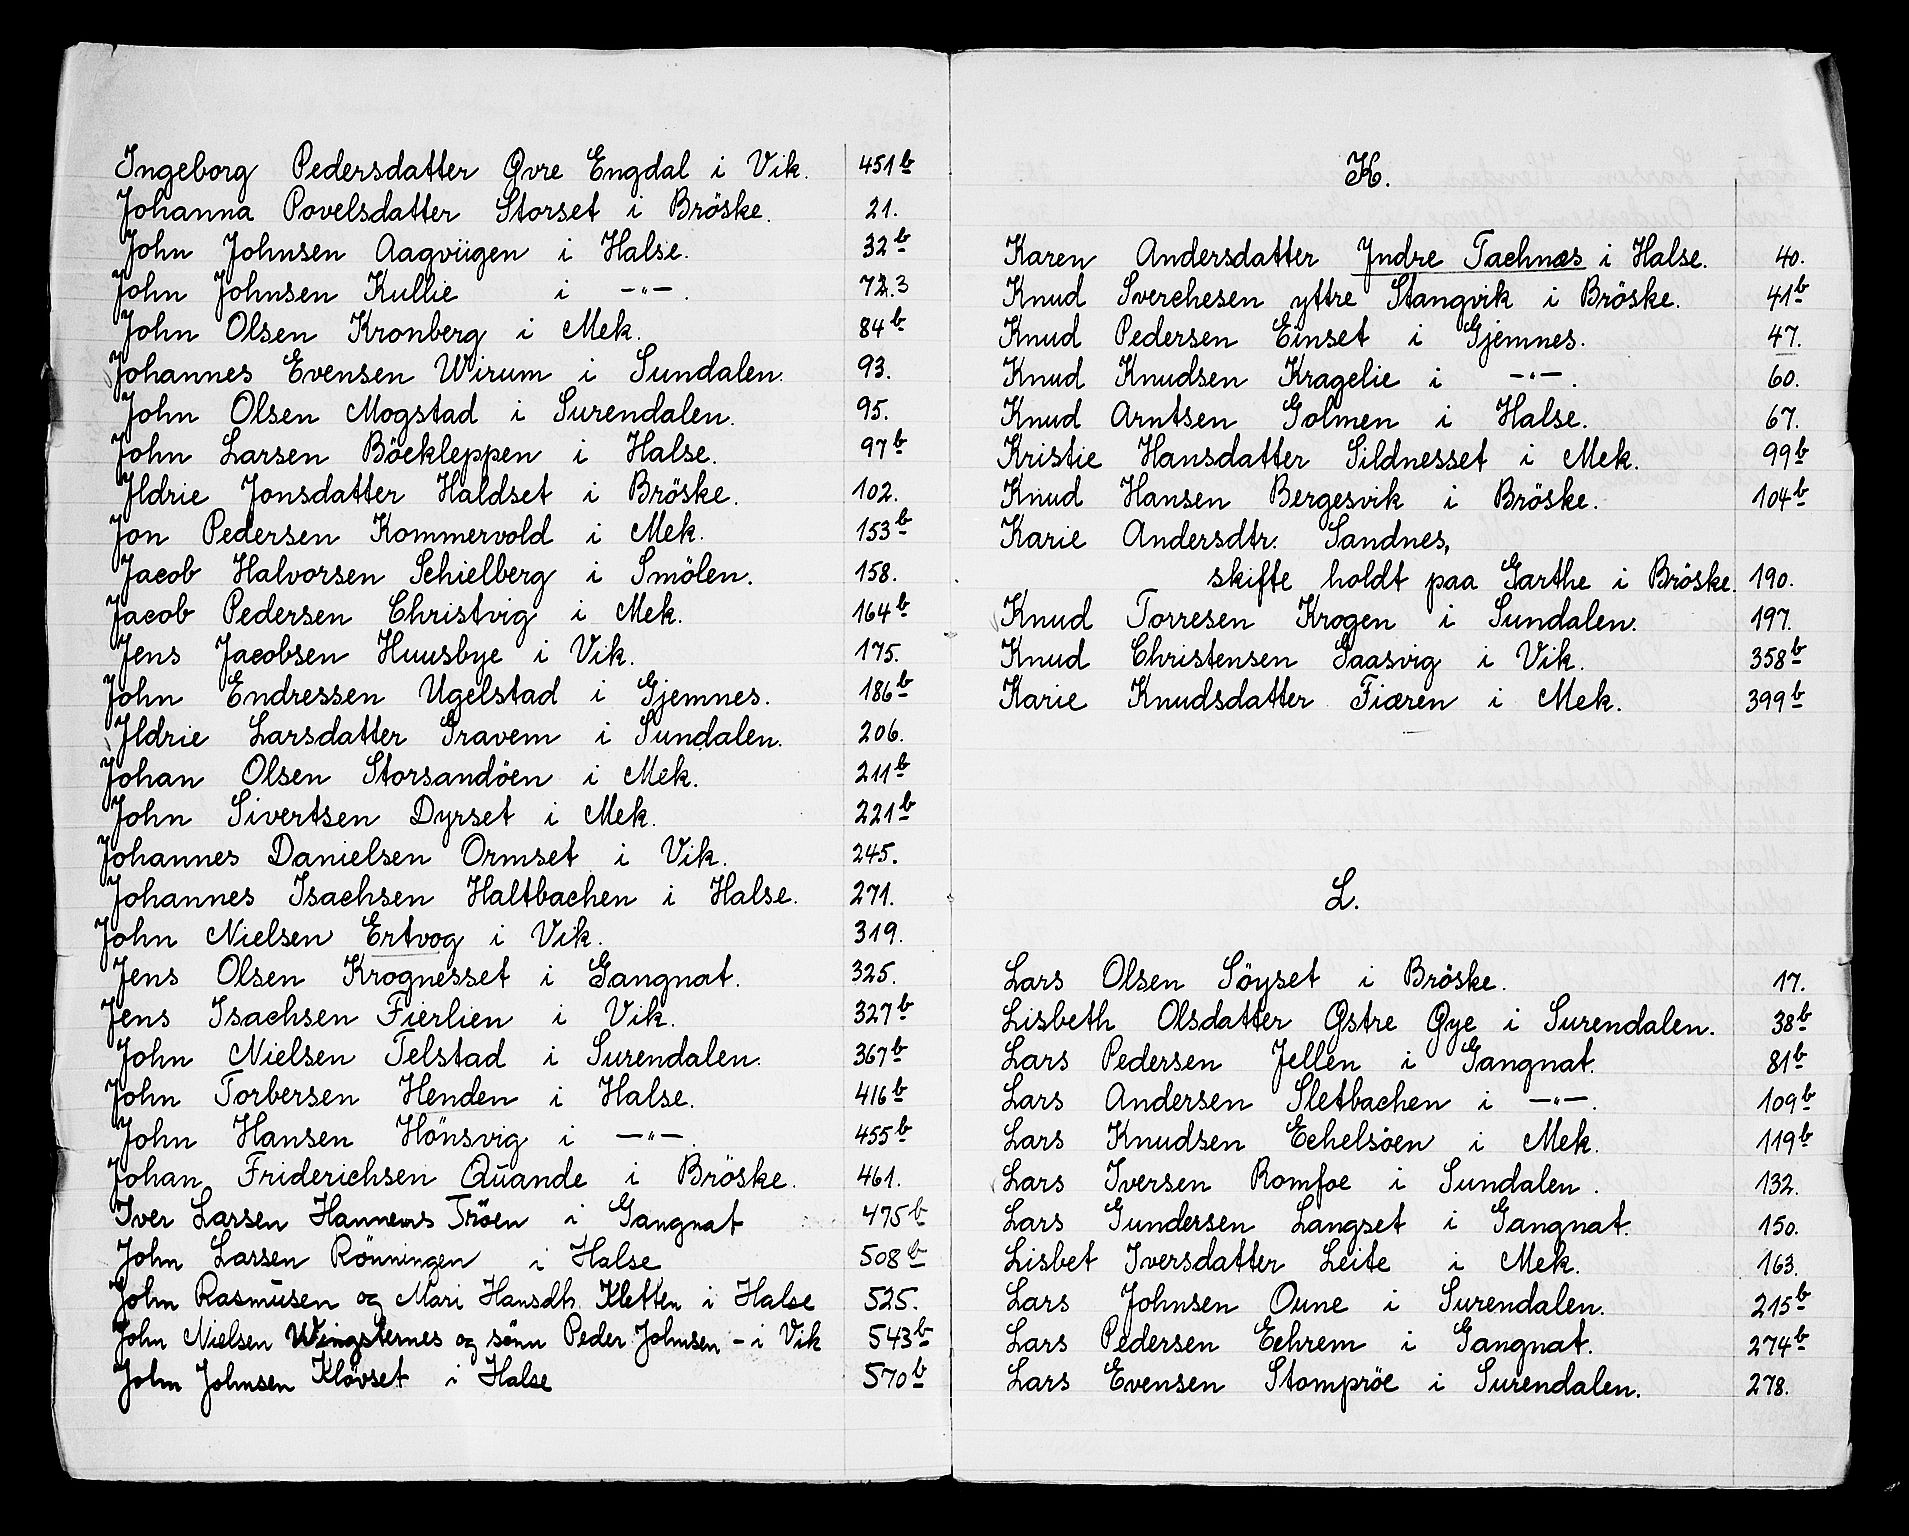 Ingeborg Pedersdatter Øvre Engdal i Vik. 451b
Johanna Povelsdatter Storset i Bröske. 21.
John Johnsen Aagviigen i Halse. 32b
John Johnsen Kullie i —"—. 72.3
John Olsen Kronberg i Mek. 84b
Johannes Evensen Wirum i Sundalen. 93.
John Olsen Mogstad i Surendalen. 95.
John Larsen Böekleppen i Halse. 97b
Ildrie Jonsdatter Haldset i Bröske. 102.
Jon Pedersen Kommervold i Mek. 153b
Jacob Halvorsen Schielberg i Smölen. 158.
Jacob Pedersen Christvig i Mek. 164b
Jens Jacobsen Huusbye i Vik. 175.
John Endressen Ugelstad i Gjemnes. 186b
Ildrie Larsdatter Gravem i Sundalen. 206.
Johan Olsen Storsandöen i Mek. 211b
John Sivertsen Dyrset i Mek. 221b
Johannes Danielsen Ormset i Vik. 245.
Johannes Isachsen Haltbachen i Halse. 271.
John Nielsen Ertvog i Vik. 319.
Jens Olsen Krognesset i Gangnat. 325.
Jens Isachsen Fierlien i Vik. 327b
John Nielsen Telstad i Surendalen. 367b
John Torbersen Henden i Halse. 416b
John Hansen Hönsvig i —"—. 455b
Johan Friderichsen Quande i Bröske. 461.
Iver Larsen Hannems Tröen i Gangnat 475b
John Larsen Rönningen i Halse 508b
John Rasmusen og Mari Hansdtr. Kletten i Halse 525.
John Nielsen Wingsternes og sönn Peder Johnsen - i Vik 543b
John Johnsen Klövset i Halse 570b
K.
Karen Andersdatter Indre Taehnæs i Halse. 40.
Knud Sverchesen yttre Stangvik i Bröske. 41b
Knud Pedersen Einset i Gjemnes. 47.
Knud Knudsen Kragelie i —"—. 60.
Knud Arntsen Golmen i Halse. 67.
Kristie Hansdatter Sildnesset i Mek. 99b
Knud Hansen Bergesvik i Bröske. 104b
Karie Andersdtr. Sandnes,
skifte holdt paa Garthe i Bröske. 190.
Knud Torresen Krogen i Sundalen. 197.
Knud Christensen Gaasvig i Vik. 358b
Karie Knudsdatter Fiæren i Mek. 399b
L.
Lars Olsen Söyset i Bröske. 17.
Lisbeth Olsdatter Østre Øye i Surendalen. 38b
Lars Pedersen Jellen i Gangnat. 81b
Lars Andersen Sletbachen i —"—. 109b
Lars Knudsen Echelsöen i Mek. 119b
Lars Iversen Romfoe i Sundalen. 132.
Lars Gundersen Langset i Gangnat. 150.
Lisbet Iversdatter Leite i Mek. 163.
Lars Johnsen Oune i Surendalen. 215b
Lars Pedersen Eehrem i Gangnat. 274b
Lars Evensen Stompröe i Surendalen. 278.